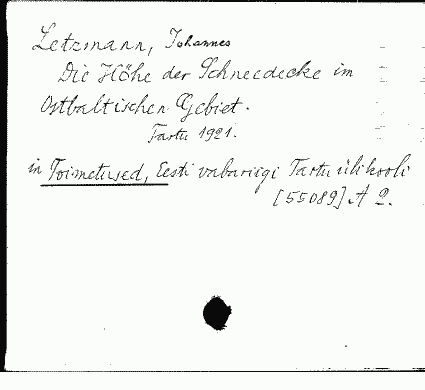 Letzmann, Johannes
Die Höhe der Schneedecke im
Ostbaltischen Gebiet.
Tartu 1921.
in Toimetused, Eesti vabariigi Tartu ülikooli
[55089] A 2.